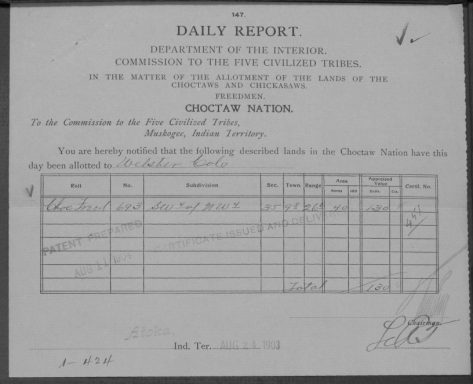 147.
DAILY REPORT.
DEPARTMENT OF THE INTERIOR.
COMMISSION TO THE FIVE CIVILIZED TRIBES.
IN THE MATTER OF THE ALLOTMENT OF THE LANDS OF THE
CHOCTAWS AND CHICKASAWS.
FREEDMEN.
CHOCTAW NATION.
To the Commission to the Five Civilized Tribes,
Muskogee, Indian Territory.
You are hereby notified that the following described lands in the Choctaw Nation have this
day been allotted to Webster Cole
Roll No. Subdivision Sec. Town Range Area Appraised Value Certf. No.
Acres 100 Dols. Cts.
Choc Freed 693 SW 4 of NW 4 35 9S 26E 40 130
PATENT PREPARED
CERTIFICATE ISSUED AND DELIVERED
AUG 11
Total 130
Chairman.
Atoka,
Ind. Ter. AUG 21 1903
1-424